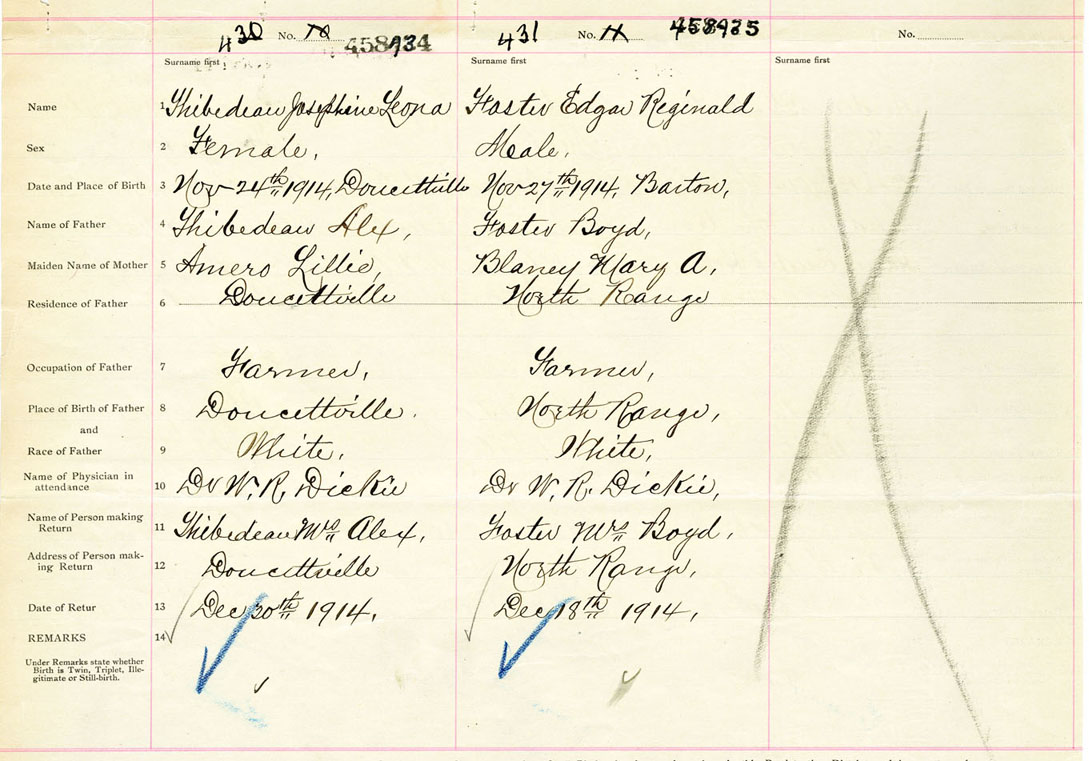 430 No. 10 458934 431 No. 11 458935 No.
Surname first Surname first Surname first
Name 1 Thibedeau Josephine Leona Foster Edgar Reginald
Sex 2 Female, Male,
Date and Place of Birth 3 Nov 24th 1914, Doucettville Nov 27th 1914, Barton,
Name of Father 4 Thibedeau Alex, Foster Boyd,
Maiden Name of Mother 5 Amero Lillie, Blaney Mary A,
Residence of Father 6 Doucettville North Range
Occupation of Father 7 Farmer, Farmer,
Place of Birth of Father 8 Doucettville. North Range,
and
Race of Father 9 White, White,
Name of Physician in
attendance 10 Dr W. R. Dickie Dr W. R. Dickie,
Name of Person making
Return 11 Thibedeau Mrs Alex, Foster Mrs Boyd,
Address of Person mak-
ing Return 12 Doucettville North Range,
Date of Retur 13 Dec 30th 1914, Dec 18th 1914,
REMARKS 14
Under Remarks state whether
Birth is Twin, Triplet, Ille-
gitimate or Still-birth.